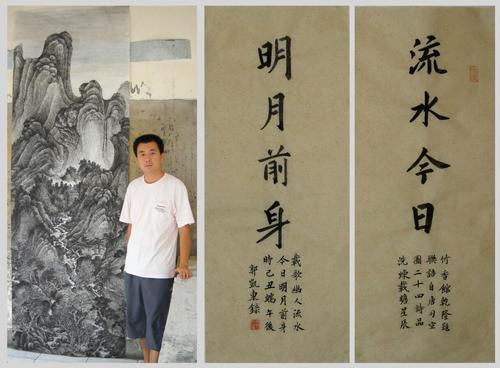 流水今日
竹香館乾隆題
聯語自唐司空
圖二十四詩品
洗煉載瞻星辰
明月前身
載歌幽人流水
今日明月前身
時己丑端午後
郭凱東錄